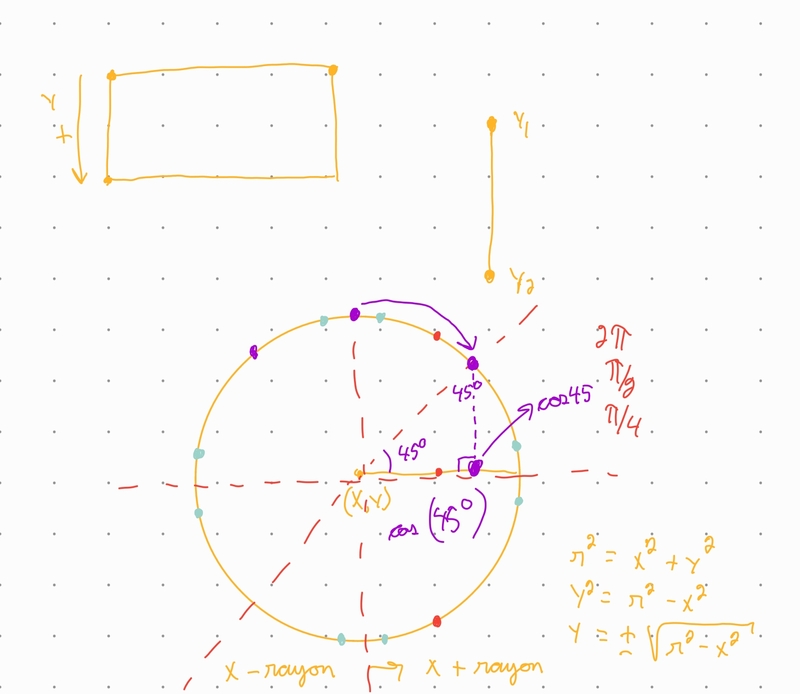 Y
+
Y₁
Y₂
2π
π/2
π/4
45°
cos45
45°
(X,Y)
cos (45°)
r² = x² + y²
Y² = r² - x²
Y = ± √r² - x²
X - rayon
X + rayon